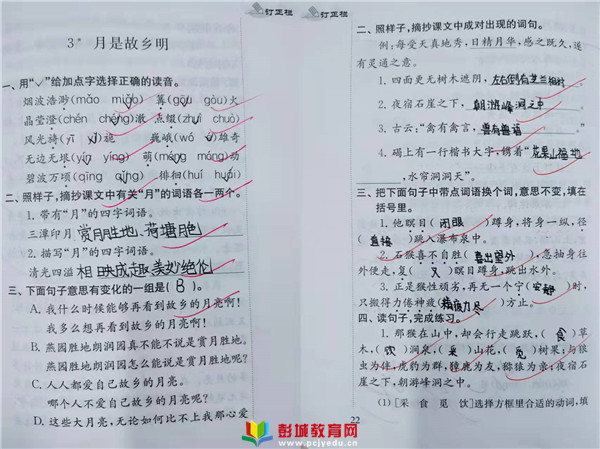 订正栏
3* 月是故乡明
一、用“√”给加点字选择正确的读音。
烟波浩渺(māo miǎo) 篝(gōu gòu)火
晶莹澄(chén chéng)澈 点缀(zhuì chuò)
风光旖(yǐ yī)旎 巍峨(wō é)雄奇
无边无垠(yín yíng) 萌(méng máng)动
碧波万顷(qīng qǐng) 徘徊(huí huái)
二、照样子,摘抄课文中有关“月”的词语各一两个。
1. 带有“月”的四字词语。
三潭印月 赏月胜地、荷塘月色
2. 描写“月”的四字词语。
清光四溢 相映成趣 美妙绝伦
三、下面句子意思有变化的一组是( B )。
A. 我什么时候能够再看到故乡的月亮啊!
我多么想再看到故乡的月亮啊!
B. 燕园胜地朗润园真不能不说是赏月胜地。
燕园胜地朗润园怎么能说是赏月胜地呢?
C. 人人都爱自己故乡的月亮。
哪个人不爱自己故乡的月亮呢?
D. 这些大月亮,无论如何比不上我那心爱
订正栏
二、照样子,摘抄课文中成对出现的词句。
例:每受天真地秀,日精月华,感之既久,遂
有灵通之意。
1. 四面更无树木遮阴,左右倒有芝兰相衬
2. 夜宿石崖之下,朝游峰洞之中
3. 古云:“禽有禽言,兽有兽语
4. 碣上有一行楷书大字,镌着“花果山福地
,水帘洞洞天”。
三、把下面句子中带点词语换个词,意思不变,填在
括号里。
1. 他瞑目( 闭眼 )蹲身,将身一纵,径
( 直接 )跳入瀑布泉中。
2. 石猴喜不自胜( 喜出望外 ),急抽身往
外便走,复( 又 )瞑目蹲身,跳出水外。
3. 正是猴性顽劣,再无一个宁( 安静 )时,
只搬得力倦神疲( 精疲力尽 )方止。
四、读句子,完成练习。
1. 那猴在山中,却会行走跳跃,( 食 )草
木,( 饮 )涧泉,( 采 )山花,( 觅 )树果;与狼
虫为伴,虎豹为群,獐鹿为友,猕猿为亲;夜宿石
崖之下,朝游峰洞之中。
(1) [采 食 觅 饮]选择方框里合适的动词,填
22
彭城教育网
www.pcjyedu.cn